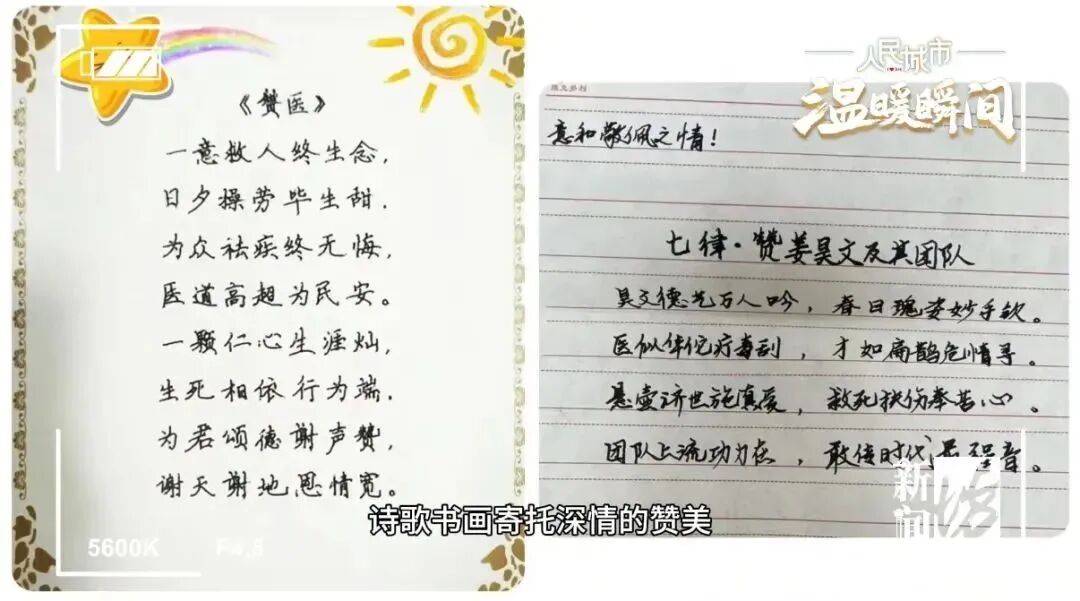 《赞医》
一意救人终生念，
日夕操劳毕生甜．
为众祛疾终无悔，
医道高超为民安。
一颗仁心生涯灿，
生死相依行为端．
为君颂德谢声赞，
谢天谢地恩情宽。
5600K
人民城市
温暖瞬间
意和敬佩之情！
七律·赞姜昊文及其团队
昊文德艺万人吟，春日瑰姿妙手钦。
医似华佗疗毒刮，才如扁鹊危情寻。
悬壶济世施真爱，救死扶伤奉苦心。
团队上流功力在，敢传时代最强音。
新闻
诗歌书画寄托深情的赞美